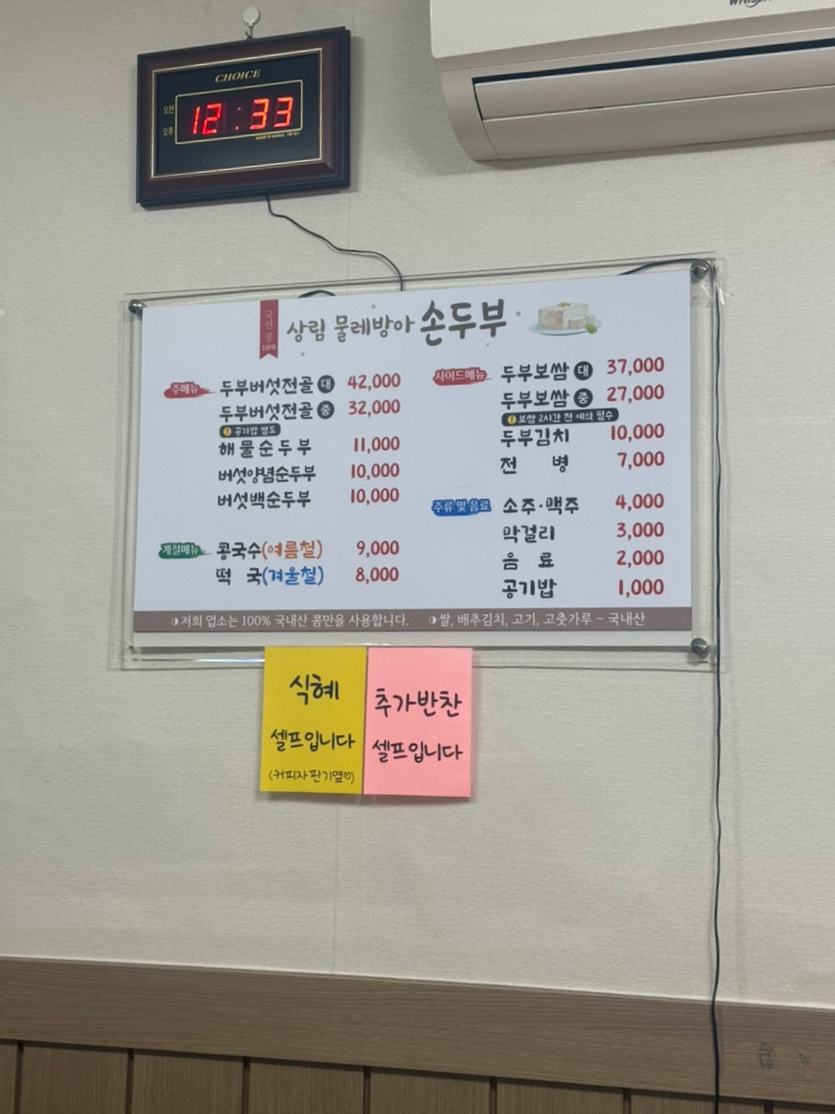 CHOICE
오전
오후
12:33
국산콩 100%
상림 물레방아 손두부
주메뉴
두부버섯전골 대 42,000
두부버섯전골 중 32,000
! 공기밥 별도
해물순두부 11,000
버섯양념순두부 10,000
버섯백순두부 10,000
계절메뉴
콩국수(여름철) 9,000
떡 국(겨울철) 8,000
사이드메뉴
두부보쌈 대 37,000
두부보쌈 중 27,000
! 보쌈 2시간 전 예약 필수
두부김치 10,000
전 병 7,000
주류 및 음료
소주·맥주 4,000
막걸리 3,000
음 료 2,000
공기밥 1,000
저희 업소는 100% 국내산 콩만을 사용합니다.
쌀, 배추김치, 고기, 고춧가루 - 국내산
식혜
셀프입니다
(커피자판기옆♡)
추가반찬
셀프입니다